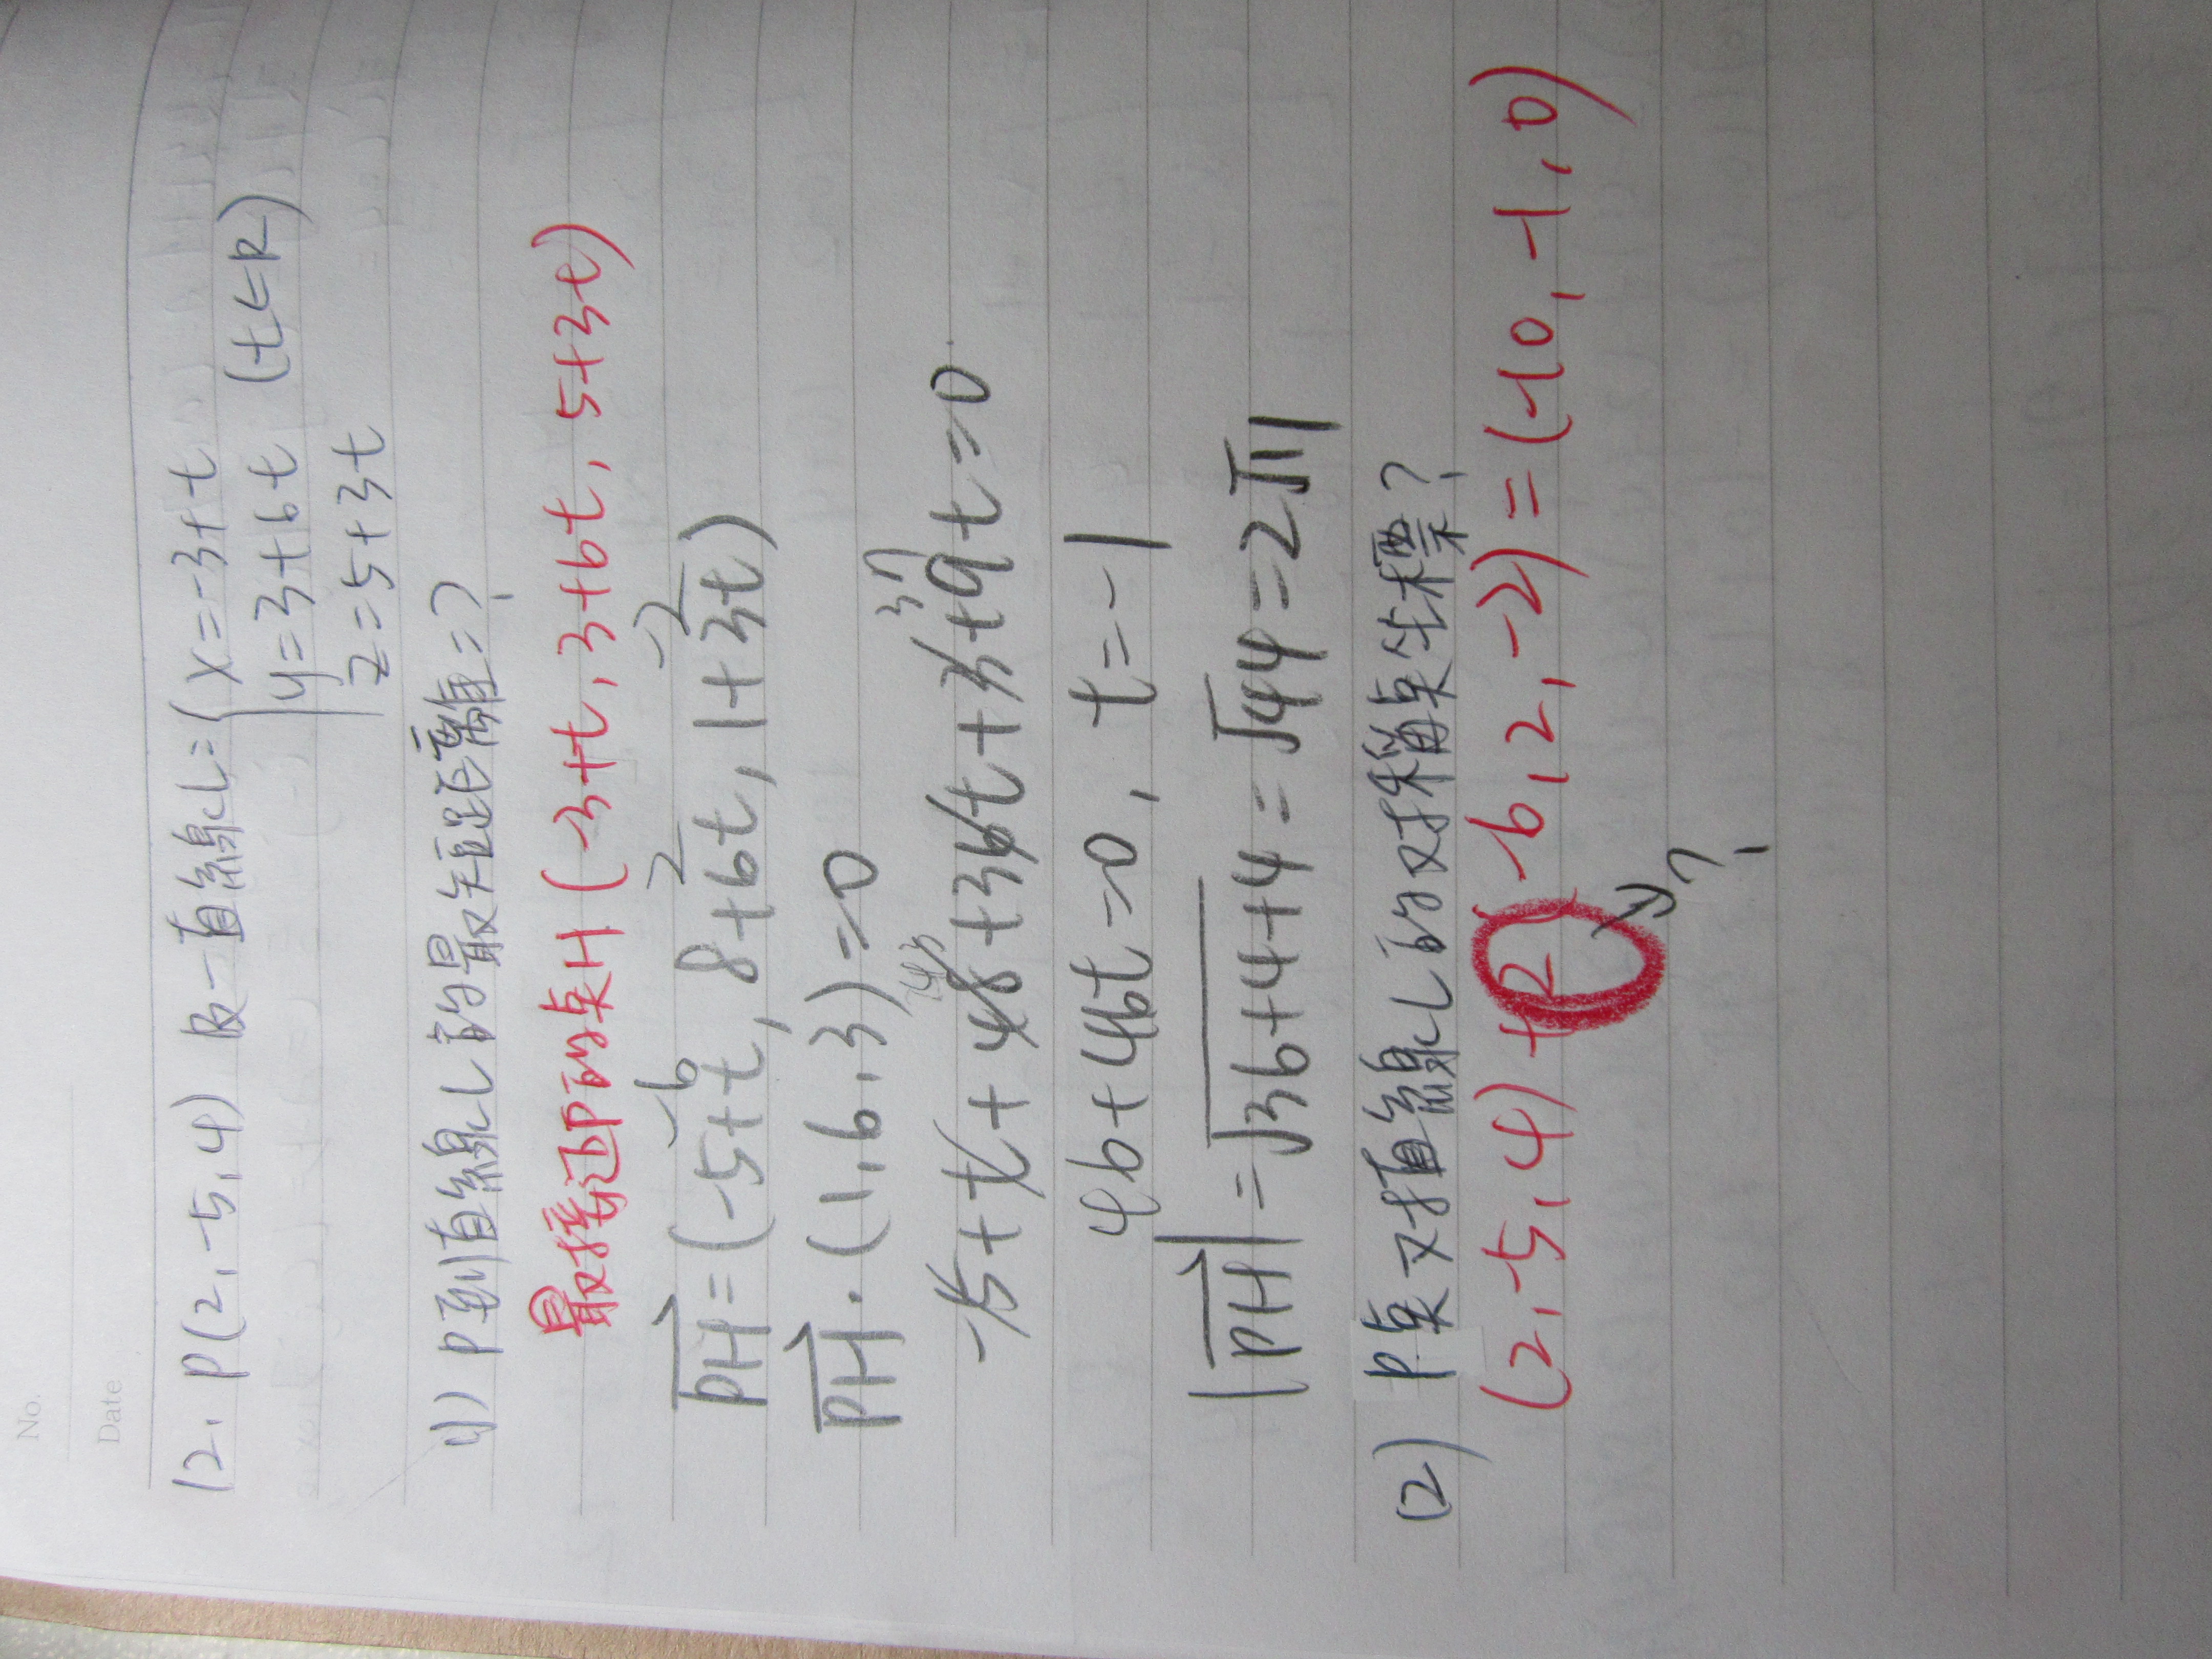 No.
Date
12. P(2,-5,4) 及一直線L={x=-3+t
y=3+6t (t∈R)
z=5+3t
(1) P到直線L的最短距離=?
最接近P的点H(-3+t, 3+6t, 5+3t)
-6 2 -2
PH=(-5+t, 8+6t, 1+3t)
PH·(1,6,3)=0
-5+t+48+36t+3+9t=0
46+46t=0, t=-1
|PH|=√36+4+4=√44=2√11
(2) P点对直線L的对稱点坐標?
(2,-5,4)+2(-6,2,-2)=(-10,-1,0)
?